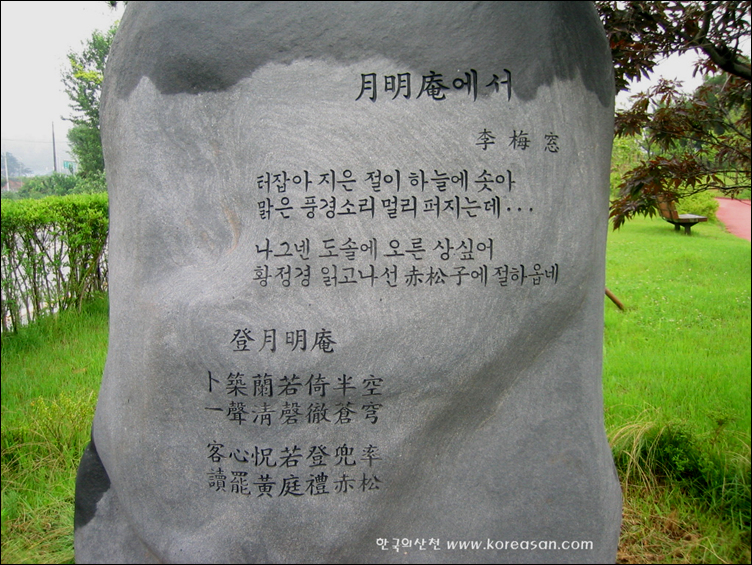 月明庵에서
李梅窓
터잡아 지은 절이 하늘에 솟아
맑은 풍경소리 멀리 퍼지는데...
나그넨 도솔에 오른 상싶어
황정경 읽고나선 赤松子에 절하옵네
登月明庵
卜築蘭若倚半空
一聲淸磬徹蒼穹
客心怳若登兜率
讀罷黃庭禮赤松
한국의산천 www.koreasan.com